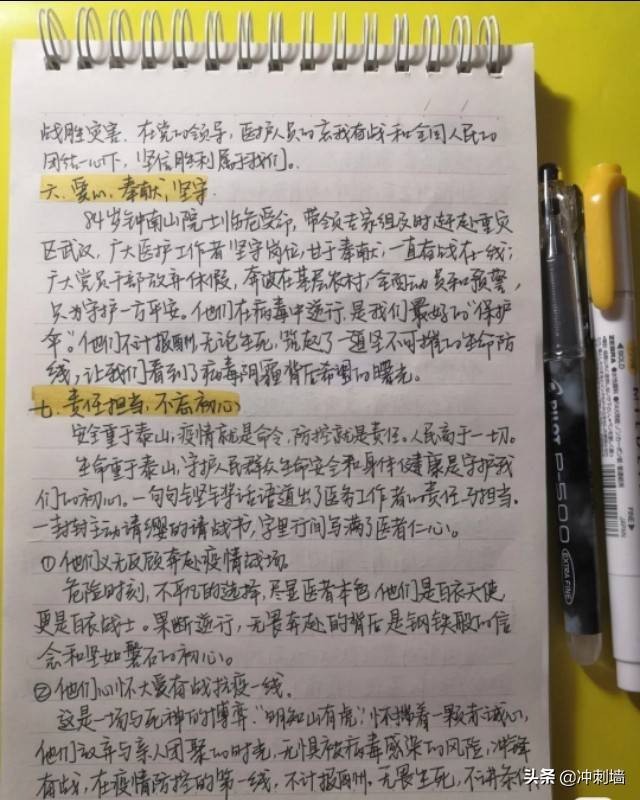 战胜灾害. 在党的领导, 医护人员的忘我奋战和全国人民的
团结一心下, 坚信胜利属于我们。
六. 爱心、奉献, 坚守
84岁钟南山院士临危受命, 带领专家组及时赶赴重灾
区武汉, 广大医护工作者坚守岗位, 甘于奉献, 一直奋战在一线;
广大党员干部放弃休假, 奔波在基层农村, 全面动员和预警,
只为守护一方平安。他们在病毒中逆行, 是我们最好的“保护
伞”。他们不计报酬, 无论生死, 筑起了一道坚不可摧的生命防
线, 让我们看到了病毒阴霾背后希望的曙光。
七. 责任担当, 不忘初心
安全重于泰山, 疫情就是命令, 防控就是责任。人民高于一切。
生命重于泰山, 守护人民群众生命安全和身体健康是守护我
们的初心。一句句铿锵话语道出了医务工作者的责任与担当.
一封封主动请缨的请战书, 字里行间写满了医者仁心。
①他们义无反顾奔赴疫情战场.
危险时刻, 不平凡的选择, 尽显医者本色 他们是白衣天使
更是白衣战士。果断逆行, 无畏奔赴的背后是钢铁般的信
念和坚如磐石的初心。
②他们心怀大爱奋战抗疫一线.
这是一场与死神的搏弈. “明知山有虎”, 怀揣着一颗赤诚心,
他们放弃与亲人团聚的时光, 无惧被病毒感染的风险, 冲锋
奋战, 在疫情防控的第一线, 不计报酬. 无畏生死, 不讲条件
PILOT
P-500
EXTRA FINE
BOLD
FINE
JAPAN
头条 @冲刺墙